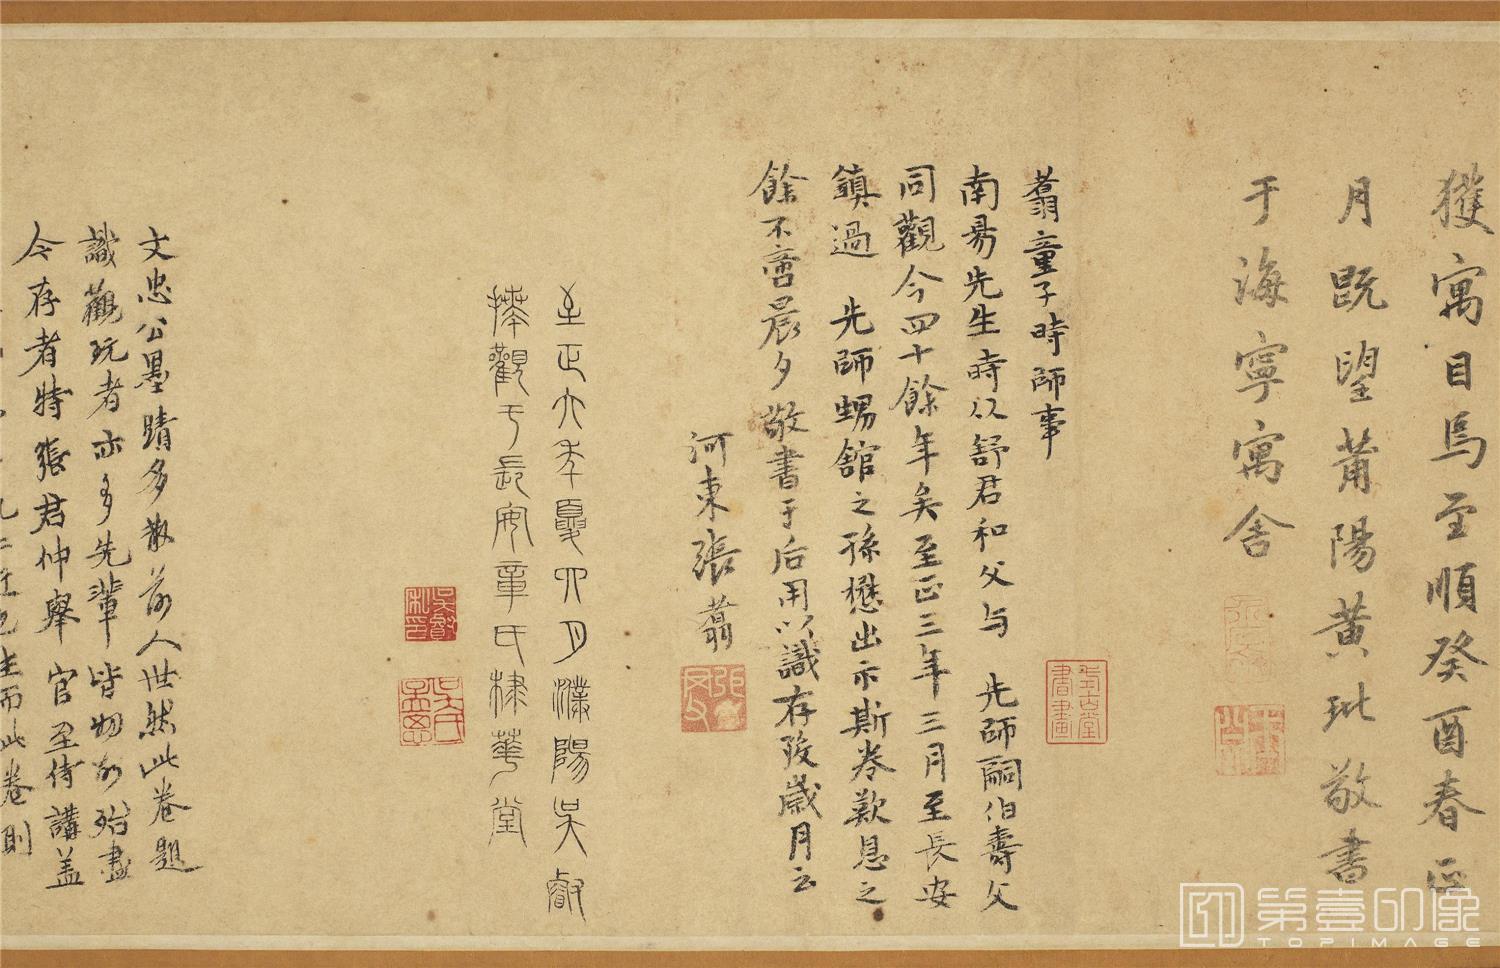 獲寓目焉至順癸酉春正
月既望莆陽黄玭敬書
于海寧寓舍
翥童子時師事
南昜先生時以舒君和父与 先師嗣伯壽父
同觀今四十餘年矣至正三年三月至長安
鎮過 先師甥舘之孫懋出示斯卷歎息之
餘不啻晨夕敬書于后用以識存歿歲月云
河東張翥
至正六年夏四月濮陽吴叡
捧觀于長安章氏棣華堂
文忠公墨蹟多散落人世然此卷題
識觀玩者亦多先輩皆物故殆盡
今存者特張君仲舉官至侍講盖
而此卷則
第壹印像
TOPIMAGE